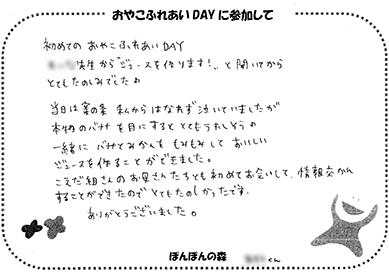 おやこふれあいDAYに参加して
初めての おやこふれあい DAY
先生から“ジュースを作ります!,, と聞いてから
とてもたのしみでした♪
当日は案の条 私からはなれず泣いていましたが
本物のバナナを目にすると とてもうれしそう♪
一緒に バナナとみかんを もみもみして おいしい
ジュースを作ることができました。
こえだ組さんのお母さんたちとも初めてお会いして、情報交かん
することができたので とてもたのしかったです。
ありがとうございました。
ぽんぽんの森 くん